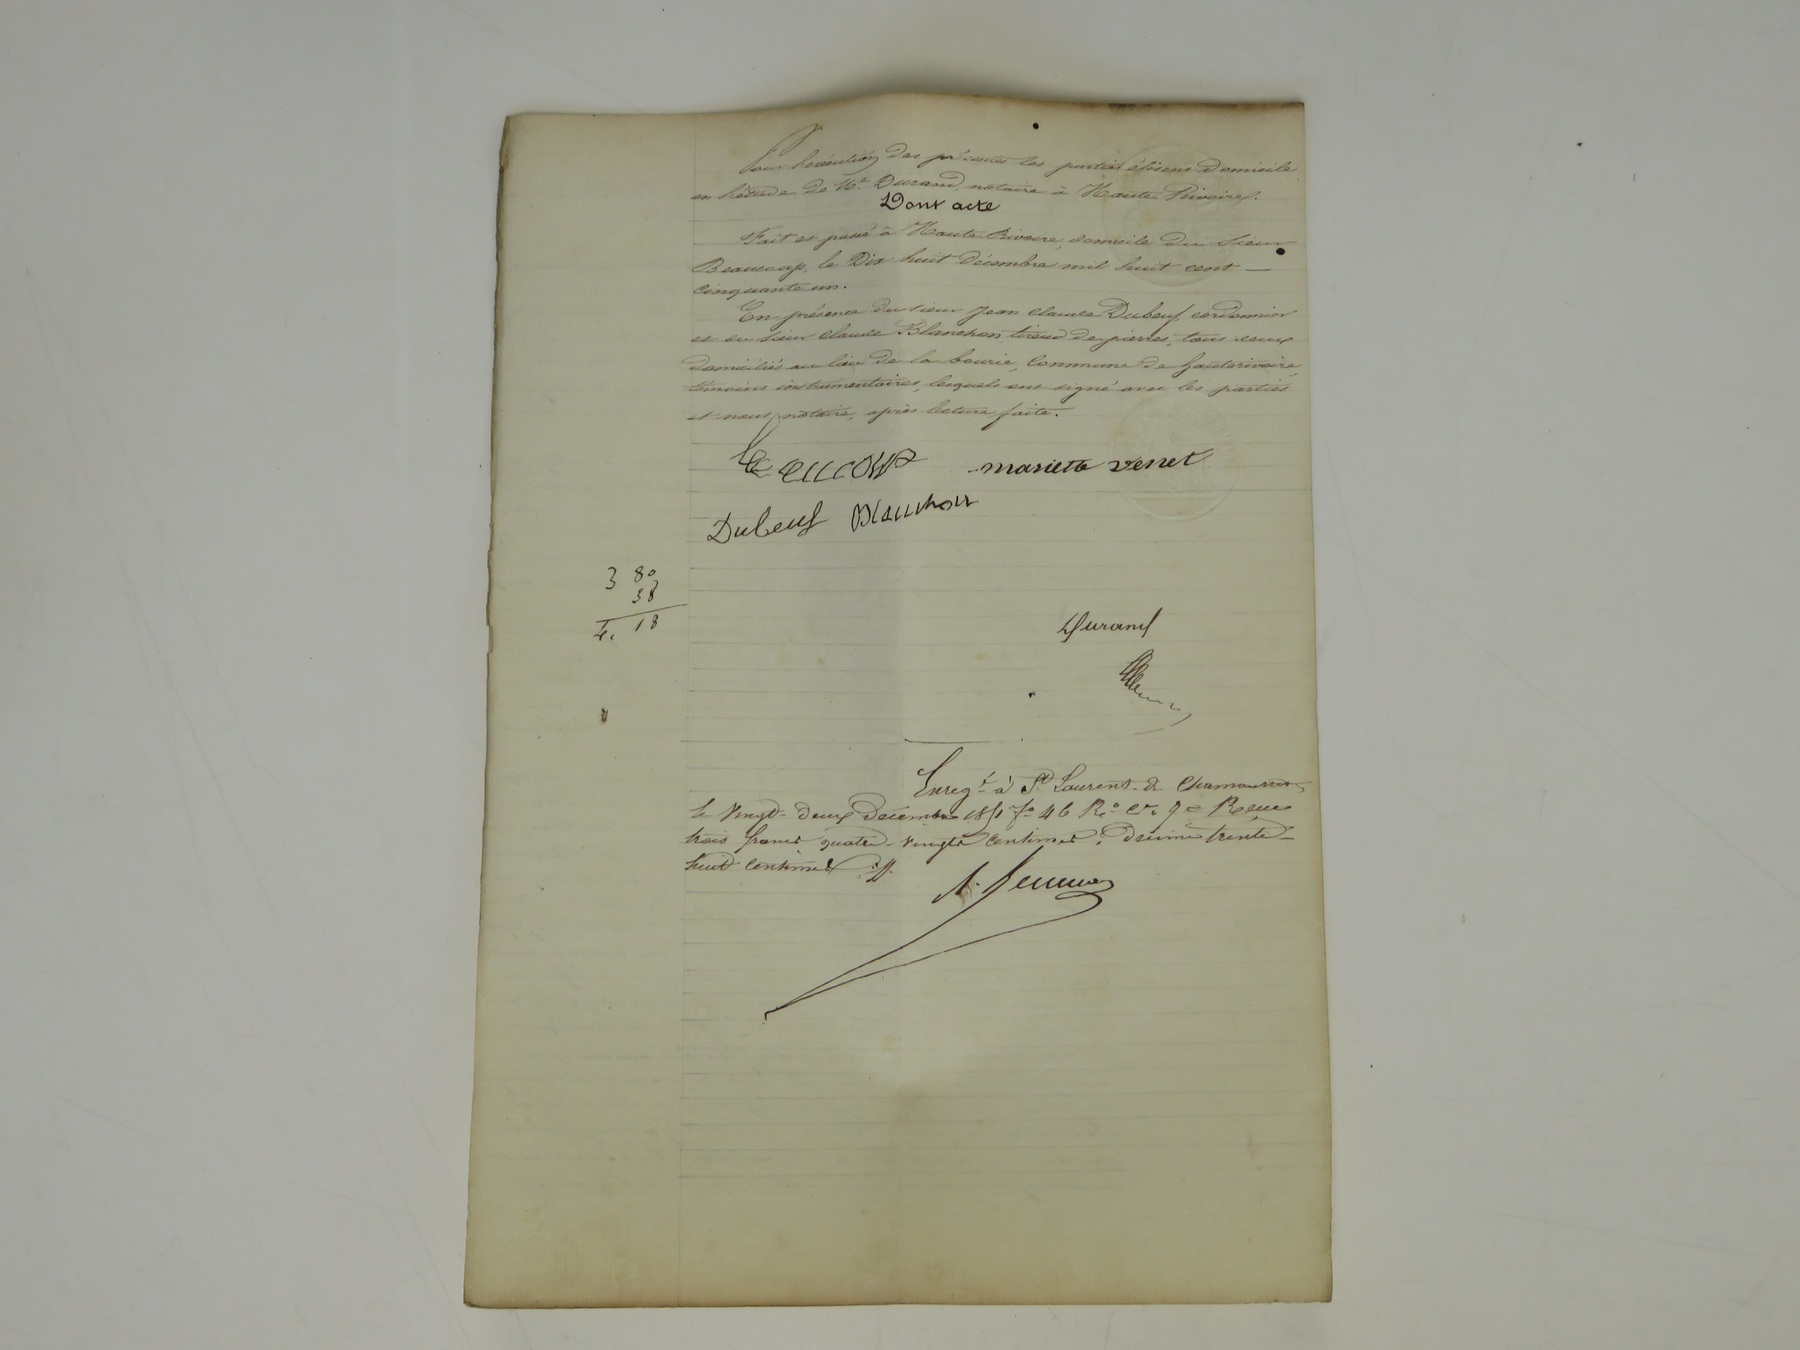 Pour l'exécution des présentes les parties élisent domicile
en l'étude de Me. Durand, notaire à Haute Rivoire.
Dont acte
Fait et passé à Haute Rivoire, domicile du sieur
Beaucoup, le Dix huit décembre mil huit cent —
cinquante un.
En présence du sieur Jean Claude Dubeuf cordonnier
et du sieur Claude Blanchon, tireur de pierres, tous deux
domiciliés au lieu de la bourie, Commune de hauterivoire,
témoins instrumentaires, lesquels ont signé avec les parties
et nous, notaire, après lecture faite.
Beaucoup mariette venet
Dubeuf Blanchon
3 80
38
4. 18
Durand
Enregé à St Laurent-de Chamousset
le vingt-deux décembre 1851 fo 46 Ro Ce. Reçu
trois francs quatre-vingts centimes; Décime trente-
huit centimes